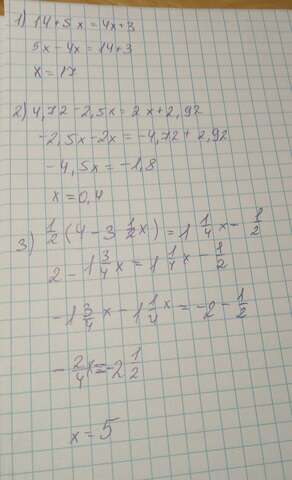 1) 14+5x=4x+3
5x-4x=14+3
x=17
2) 4,72-2,5x=2x+2,92
-2,5x-2x=-4,72+2,92
-4,5x=-1,8
x=0,4
3) 1/2(4-3 1/2x)=1 1/4x-1/2
2-1 3/4x=1 1/4x-1/2
-1 3/4x-1 1/4x=-2-1/2
-2/4x=-2 1/2
x=5